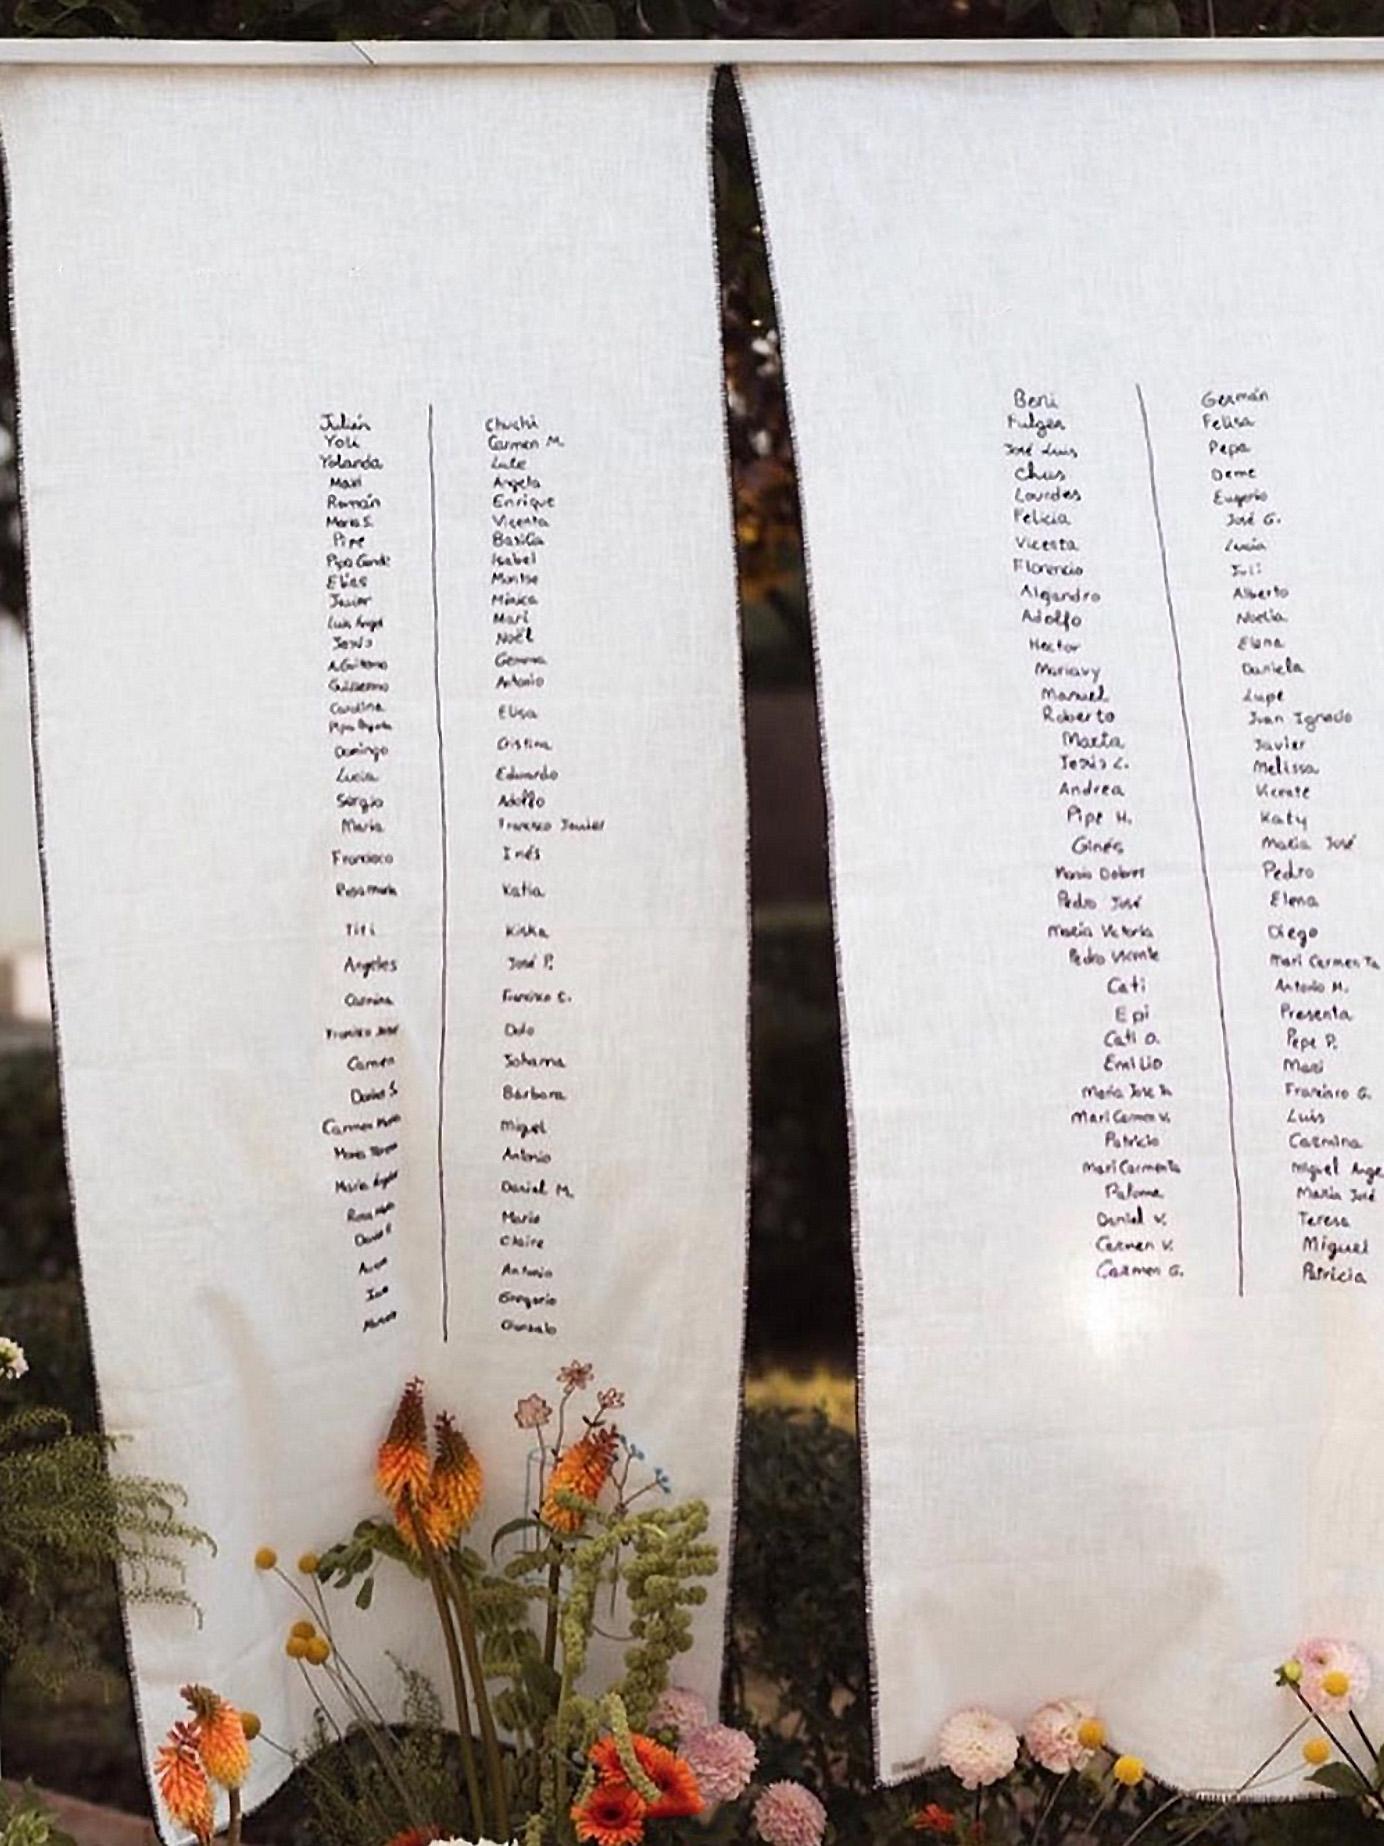 Julián
Yoli
Yolanda
Maxi
Román
María S.
Pipe
Elías
Javier
Luis Ángel
Jesús
Guillermo
Carolina
Domingo
Lucía
Sergio
María
Francisco
Rosa María
Titi
Angeles
Carmina
Francisco José
Carmen
Daniel S
Carmen
María Teresa
Rosa
Chuchi
Carmen M.
Lute
Angela
Enrique
Vicenta
Basilia
Isabel
Montse
Mónica
Mari
Noël
Gemma
Antonio
Elisa
Cristina
Eduardo
Adolfo
Francisco Javier
Inés
Katia
Kiska
José P.
Francisco C.
Dolo
Johanna
Bárbara
Miguel
Antonio
Daniel M.
Mario
Claire
Antonio
Gregorio
Gonzalo
Beni
Fulgen
José Luis
Chus
Lourdes
Felicia
Vicenta
Florencio
Alejandro
Adolfo
Hector
Mariavy
Manuel
Roberto
Marta
Jesús C.
Andrea
Pipe H.
Ginés
María Dolores
Pedro José
María Victoria
Pedro Vicente
Cati
Epi
Cati O.
Emilio
María José
Mari Carmen V.
Patricio
Mari Carmen
Paloma
Daniel V.
Carmen V.
Carmen G.
Germán
Felisa
Pepa
Deme
Eugenio
José G.
Lucía
Juli
Alberto
Noelia
Elena
Daniela
Lupe
Juan Ignacio
Javier
Melissa
Vicente
Katy
María José
Pedro
Elena
Diego
Mari Carmen
Antonio M.
Presenta
Pepe P.
Mari
Francisco G.
Luis
Carmina
Miguel Ange
María José
Teresa
Miguel
Patricia